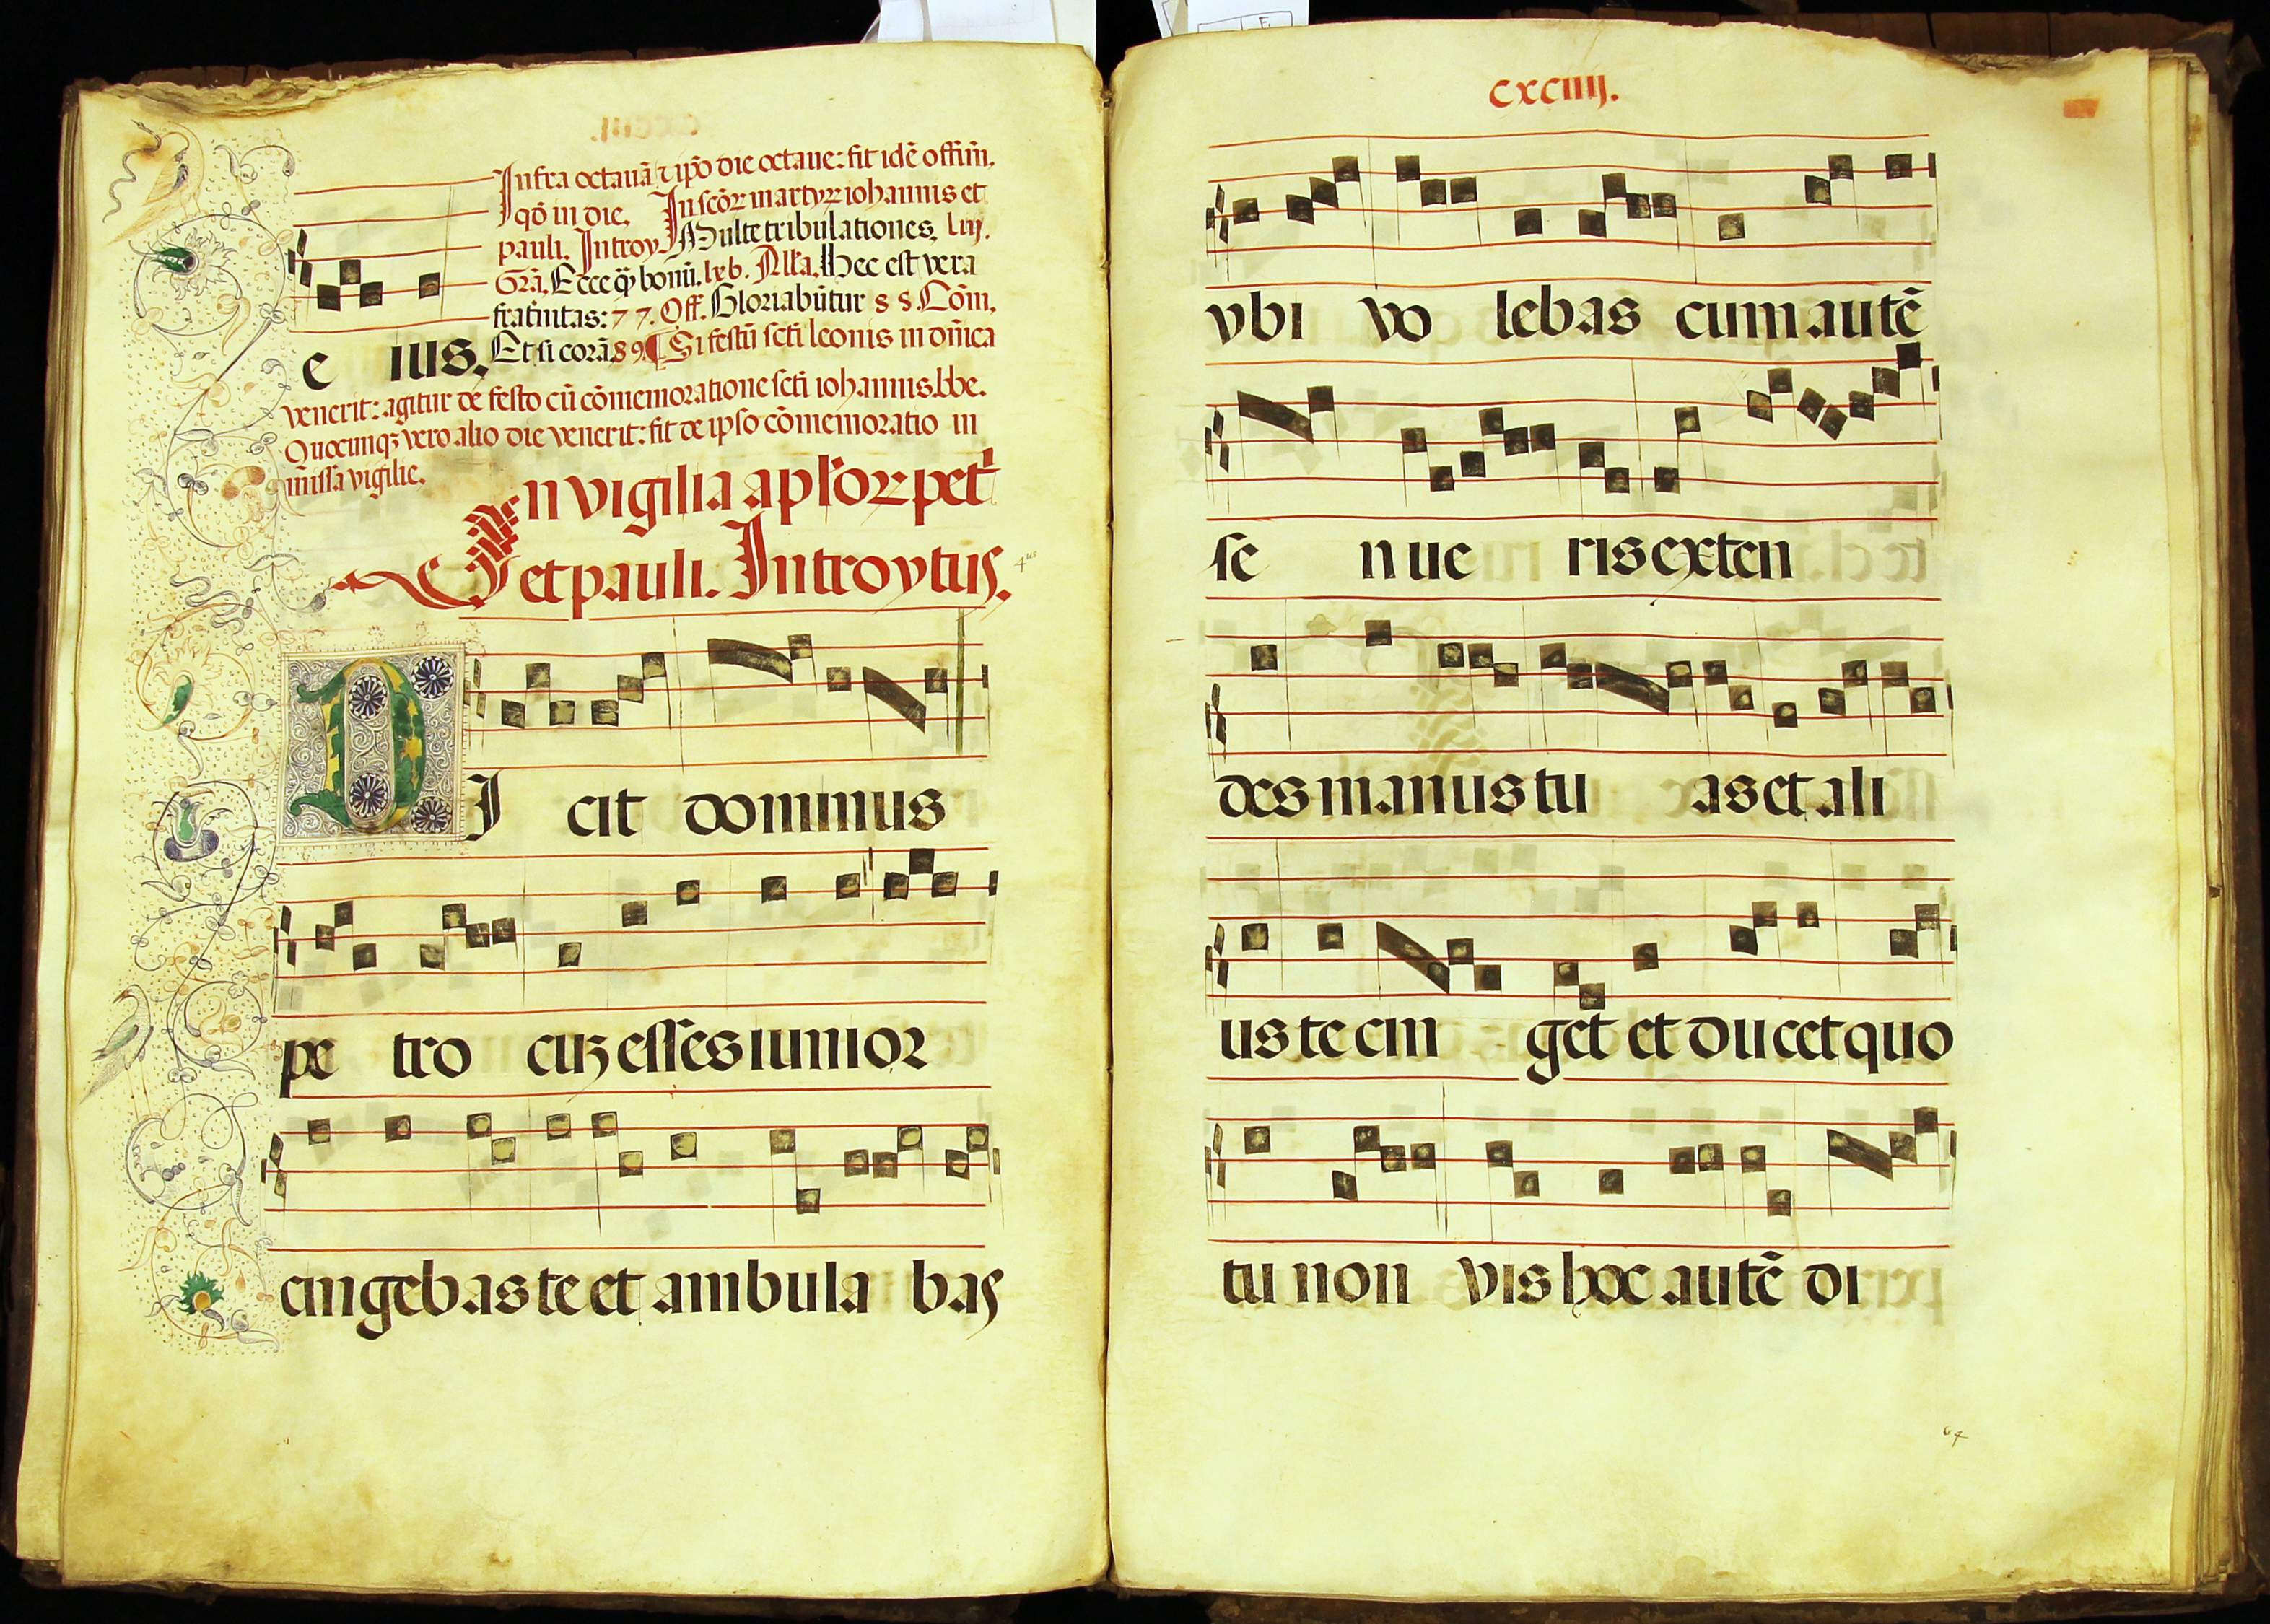 Infra octauā ⁊ ipō die octaue: fit idē offim̄.
qō in die. In scōꝝ martyꝝ iohannis et
pauli. Introy. Multe tribulationes. liij.
Grā. Ecce q̄ bonū. lxb. All'a. Hec est vera
frat̄nitas: 77. Off. Gloriabūtur 88. Cōm.
e ius. Et si corā 89. ¶ Si festū scti leonis in dn̄ica
venerit: agitur de festo cū cōmemoratione scti iohannis.bbe.
Quocunqꝫ vero alio die venerit: fit de ipso cōmemoratio in
missa vigilie.
In vigilia apl'oꝝ pet
et pauli. Introytus.
4us
DI cit dominus
pe tro cuꝫ esses iunior
cingebas te et ambula bas
cxciiij.
vbi vo lebas cum autē
se nue ris exten
des manus tu as et ali
us te cin get et ducet quo
tu non vis hoc autē di